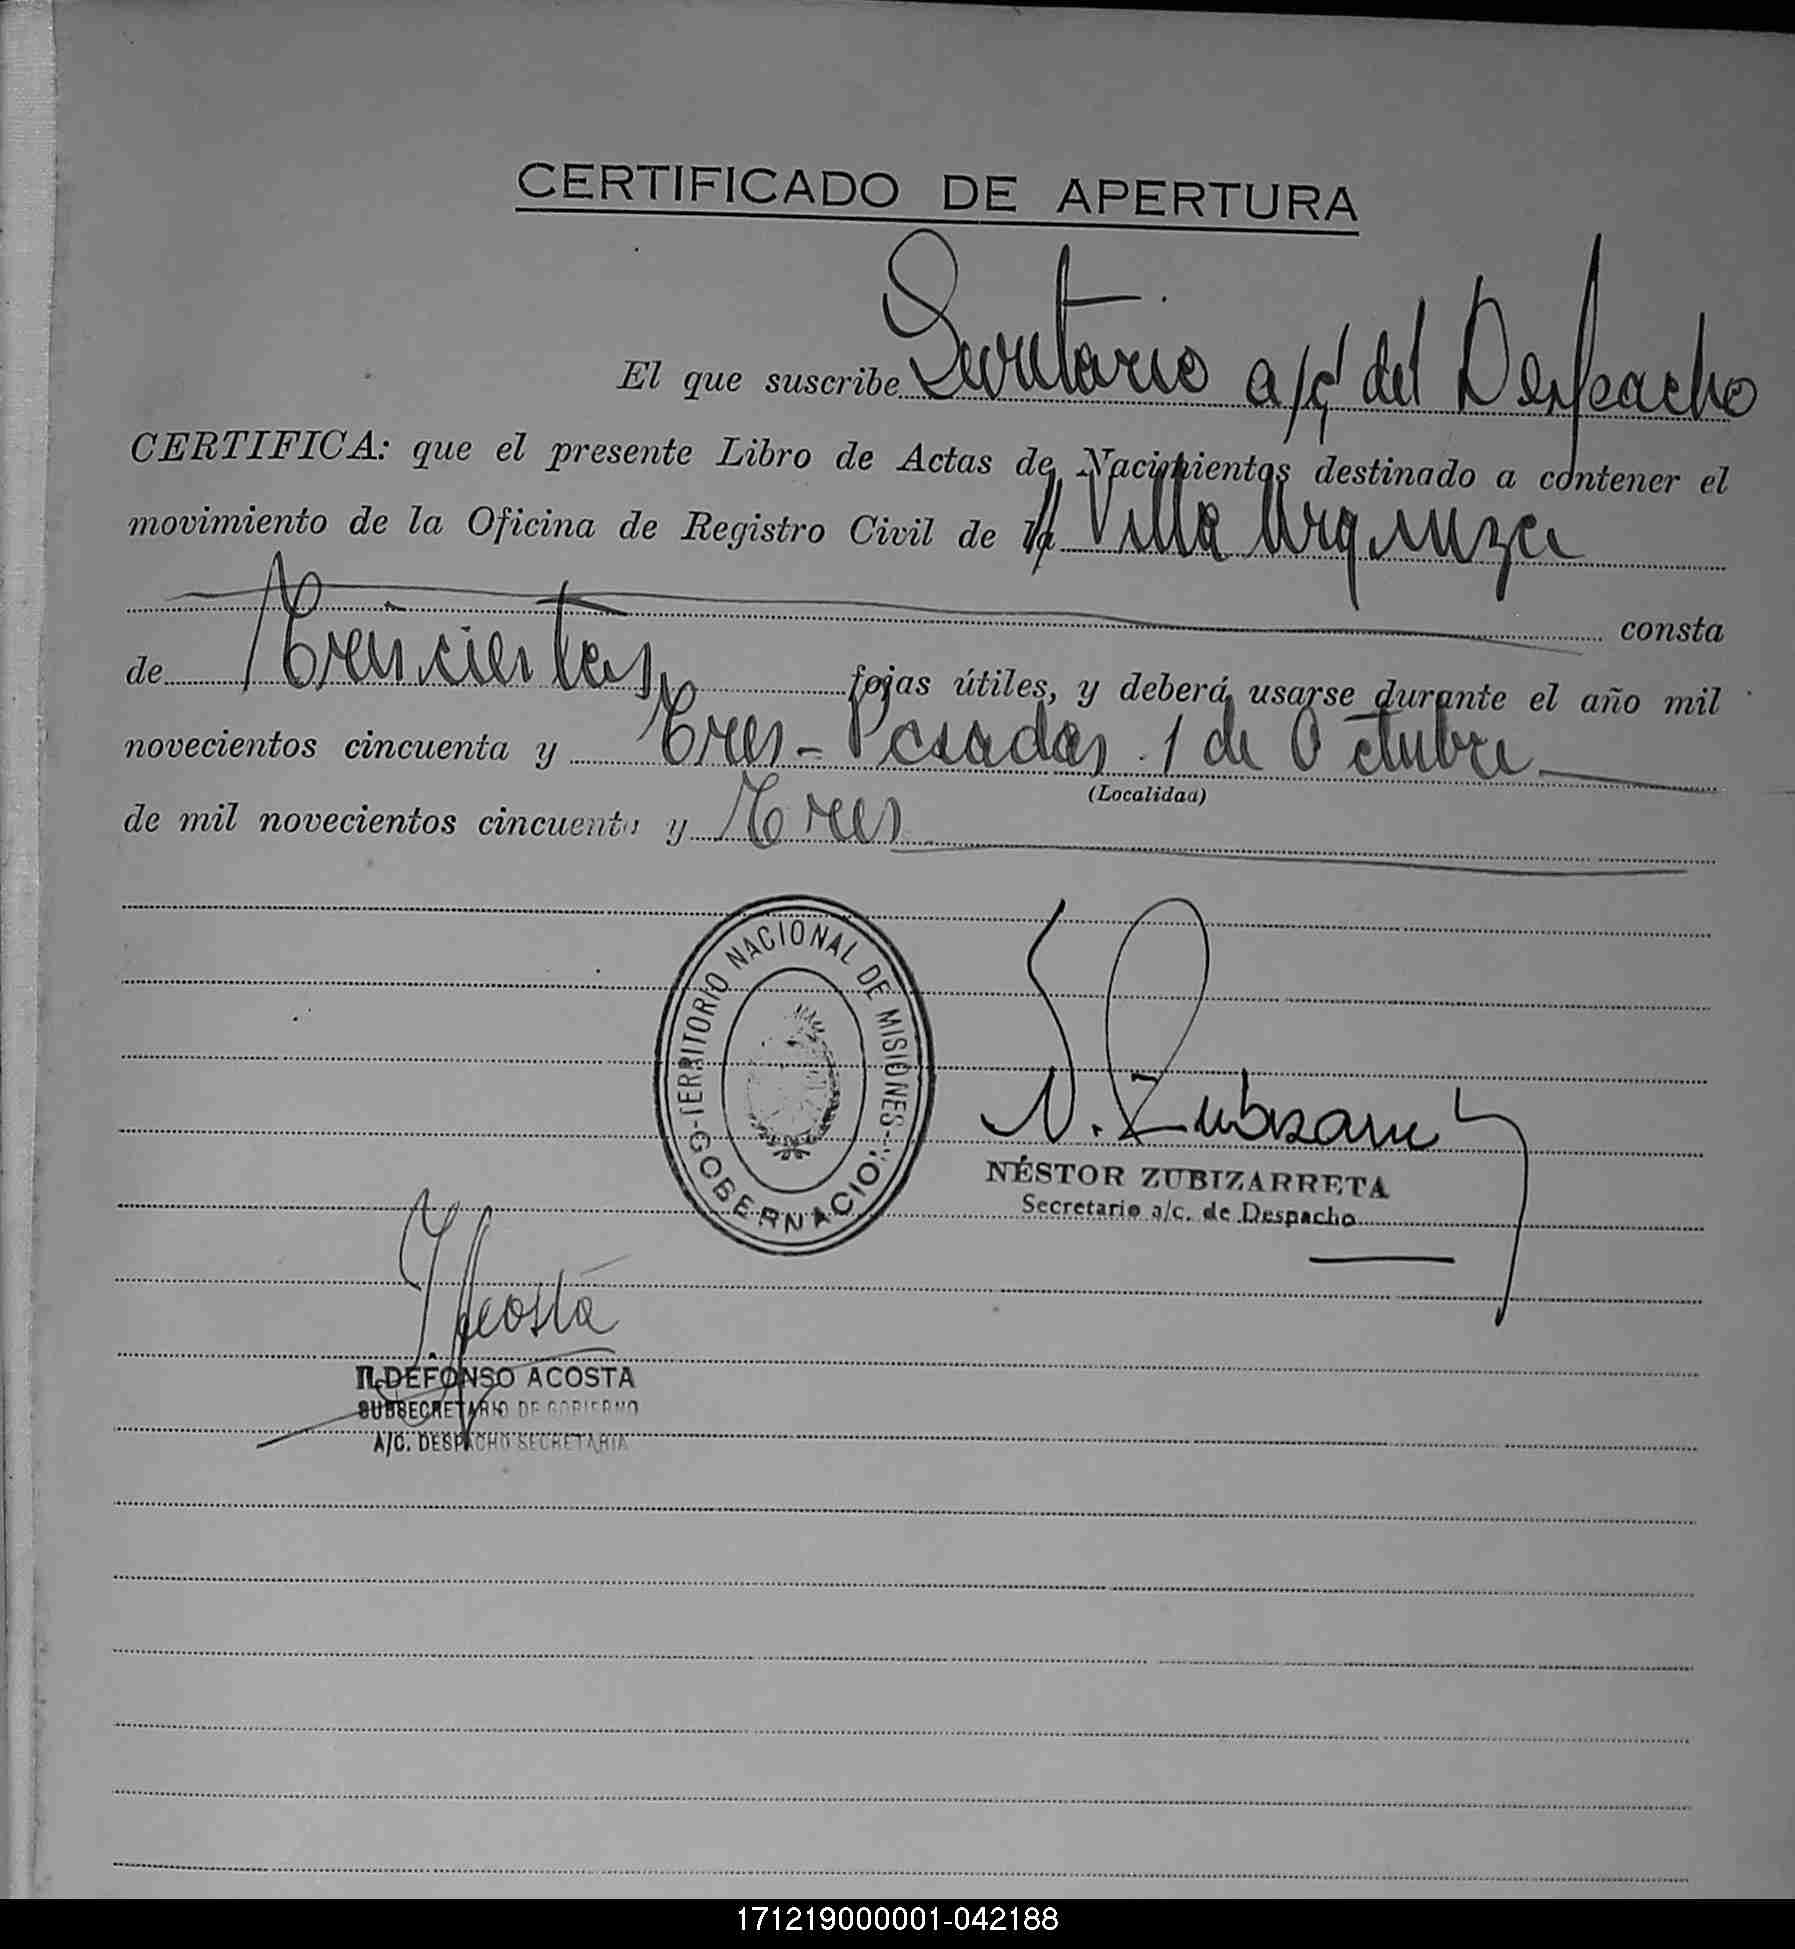 CERTIFICADO DE APERTURA
El que suscribe Secretario a/c del Despacho
CERTIFICA: que el presente Libro de Actas de Nacimientos destinado a contener el
movimiento de la Oficina de Registro Civil de Villa Urquiza
consta
de Trescientas fojas útiles, y deberá usarse durante el año mil
novecientos cincuenta y Tres - Posadas 1 de Octubre
(Localidad)
de mil novecientos cincuenta y Tres
TERRITORIO NACIONAL DE MISIONES
GOBERNACION
N. Zubizarreta
NÉSTOR ZUBIZARRETA
Secretario a/c. de Despacho
I Acosta
ILDEFONSO ACOSTA
SUBSECRETARIO DE GOBIERNO
A/C. DESPACHO SECRETARIA
171219000001-042188